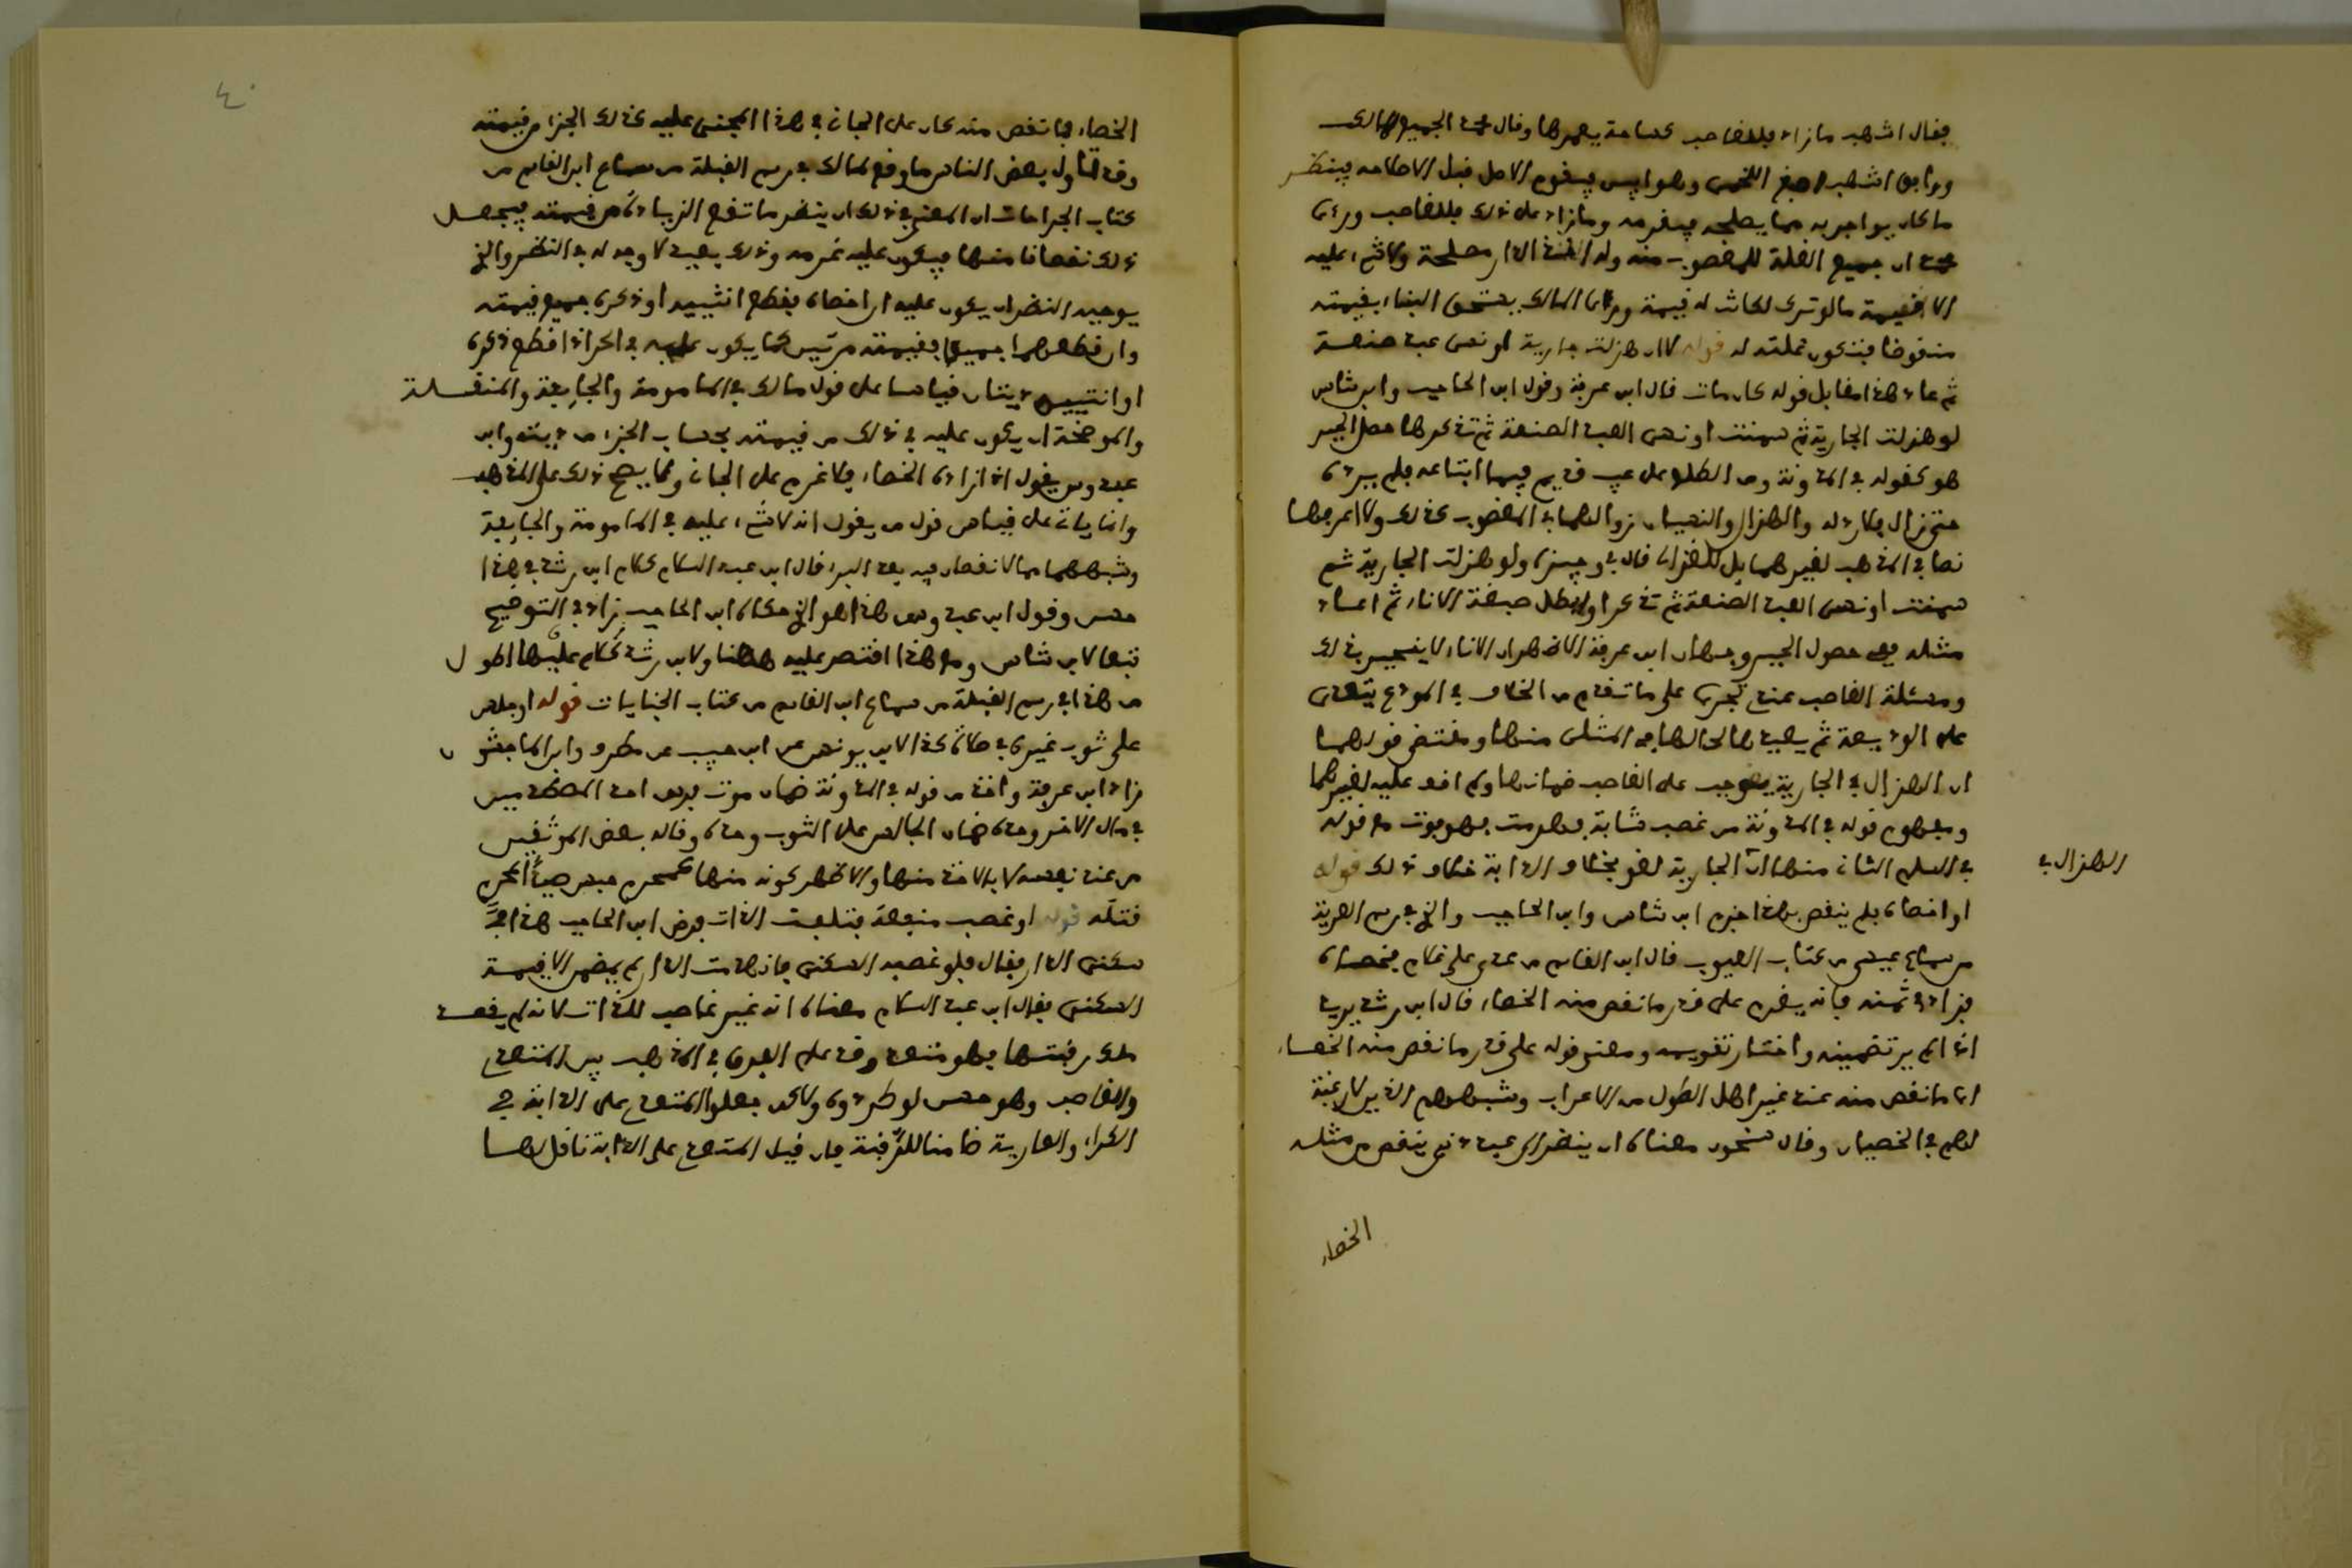 فقال اشهب ما زاد فللغاصب كساحة يعمرها وقال محمد الجميع للمالك
ووافق اشهب اصبغ اللخمي وهو ابين فيقوم الاصل قبل اصلاحه فينظر
ما كان يواجر به ممن يصلحه فيغرمه وما زاد على ذلك فللغاصب ورءى
محمد ان جميع الغلة للمغصوب منه وله اخذ الدار مصلحة ولا شيء عليه
الا قيمة ما لو نزع لكانت له قيمة ورءى المالك يستحق البناء بقيمته
منقوضا فتكون غلته له قوله لا ان هزلت جارية او نسي عبد صنعة
ثم عاد هذا مقابل قوله كان مات قال ابن عرفة وقول ابن الحاجب وابن شاس
لو هزلت الجارية ثم سمنت او نسي العبد الصنعة ثم تذكرها حصل الجبر
هو كقوله في المدونة ومن اطلع على عيب قديم فيما ابتاعه فلم يرده
حتى زال فلا رد له والهزال والنسيان زوالهما في المغصوب كذلك ولا اعرفها
نصا في المذهب لغيرهما بل للغزالي قال في وجيزه ولو هزلت الجارية ثم
سمنت او نسي العبد الصنعة ثم تذكر او ابطل صنعة الاناء ثم اعاد
مثله ففي حصول الجبر وجهان ابن عرفة الاظهر ان الاناء لا ينجبر بذلك
ومسئلة الغاصب عندي تجري على ما تقدم من الخلاف في المودع يتعدى
على الوديعة ثم يعيدها لحالها بعد المثلى منها ومقتضى قولهما
ان الهزال في الجارية يوجب على الغاصب ضمانها ولم اقف عليه لغيرهما
ومفهوم قوله في المدونة من غصب شابة فهرمت فهو فوت مع قوله
في السلم الثاني منها ان الجارية لغو بخلاف الدابة خلاف ذلك قوله
الهزال في
او خصاه فلم ينقص بهذا جزم ابن شاس وابن الحاجب والذي في رسم العرية
من سماع عيسى من كتاب العيوب قال ابن القاسم من عدى على غلام فخصاه
فزاد في ثمنه فانه يغرم على قدر ما نقص منه الخصاء قال ابن رشد يريد
اذا لم يرد تضمينه واختار تقويمه ومعنى قوله على قدر ما نقص منه الخصاء
اي ما نقص منه عند غير اهل الطول من الاعراب وشبههم الذين لا رغبة
لهم في الخصيان وقال سحنون معناه ان ينظر الى عبد دني ينقص من مثله
الخصاء
الخصاء فما نقص منه كان على الجاني في هذا المجني عليه كذلك الجزء من قيمته
وقد تأول بعض الناس ما وقع لمالك في رسم القبلة من سماع ابن القاسم من
كتاب الجراحات ان المعنى في ذلك ان ينظر ما تقع الزيادة من قيمته فيجعل
ذلك نقصانا منها فيكون عليه غرمه وذلك بعيد لا وجه له في النظر والذي
يوجبه النظر ان يكون عليه ان اخصاه بقطع انثييه او ذكره جميع قيمته
وان قطعهما جميعا فقيمته مرتين كما يكون عليه في الحر اذا قطع ذكره
او انثييه ديتان قياسا على قول مالك في المامومة والجايفة والمنقلة
والموضحة ان يكون عليه في ذلك من قيمته بحساب الجزء من ديته وابن
عبدوس يقول اذا زاده الخصاء فلا غرم على الجاني ولا يصح ذلك على المذهب
وانما ياتي على قياس قول من يقول انه لا شيء عليه في المامومة والجايفة
وشبههما مما لا نقصان فيه بعد البرء قال ابن عبد السلام كلام ابن رشد في هذا
حسن وقول ابن عبدوس هذا هو الذي حكاه ابن الحاجب زاد في التوضيح
تبعا لابن شاس ومع هذا اقتصر عليه ههنا ولابن رشد كلام عليها اطول
من هذا في رسم القبلة من سماع ابن القاسم من كتاب الجنايات قوله او جلس
على ثوب غيره في صلاة كذا لابن يونس عن ابن حبيب عن مطرف وابن الماجشون
زاد ابن عرفة واخذ من قوله في المدونة ضمان موت فرس احد المصطدمين
في مال الاخر وحده ضمان الجالس على الثوب وحده وقاله بعض الموثقين
من عند نفسه لا بالاخذ منها والاظهر كونه منها كمحرم حبس صيدا لمحرم
قتله قوله او غصب منفعة فتلفت الذات فرض ابن الحاجب هذا في
سكنى الدار فقال فلو غصب السكنى فانهدمت الدار لم يضمن الا قيمة
السكنى فقال ابن عبد السلام معناه انه غير غاصب للذات لانه لم يقصد
ملك رقبتها فهو متعد وقد علم الفرق في المذهب بين المتعدي
والغاصب وهو حسن لو طردوه ولاكن جعلوا المتعدي على الدابة في
الكراء والعارية ضامنا للرقبة فان قيل المتعدي على الدابة ناقل لها
٤٠